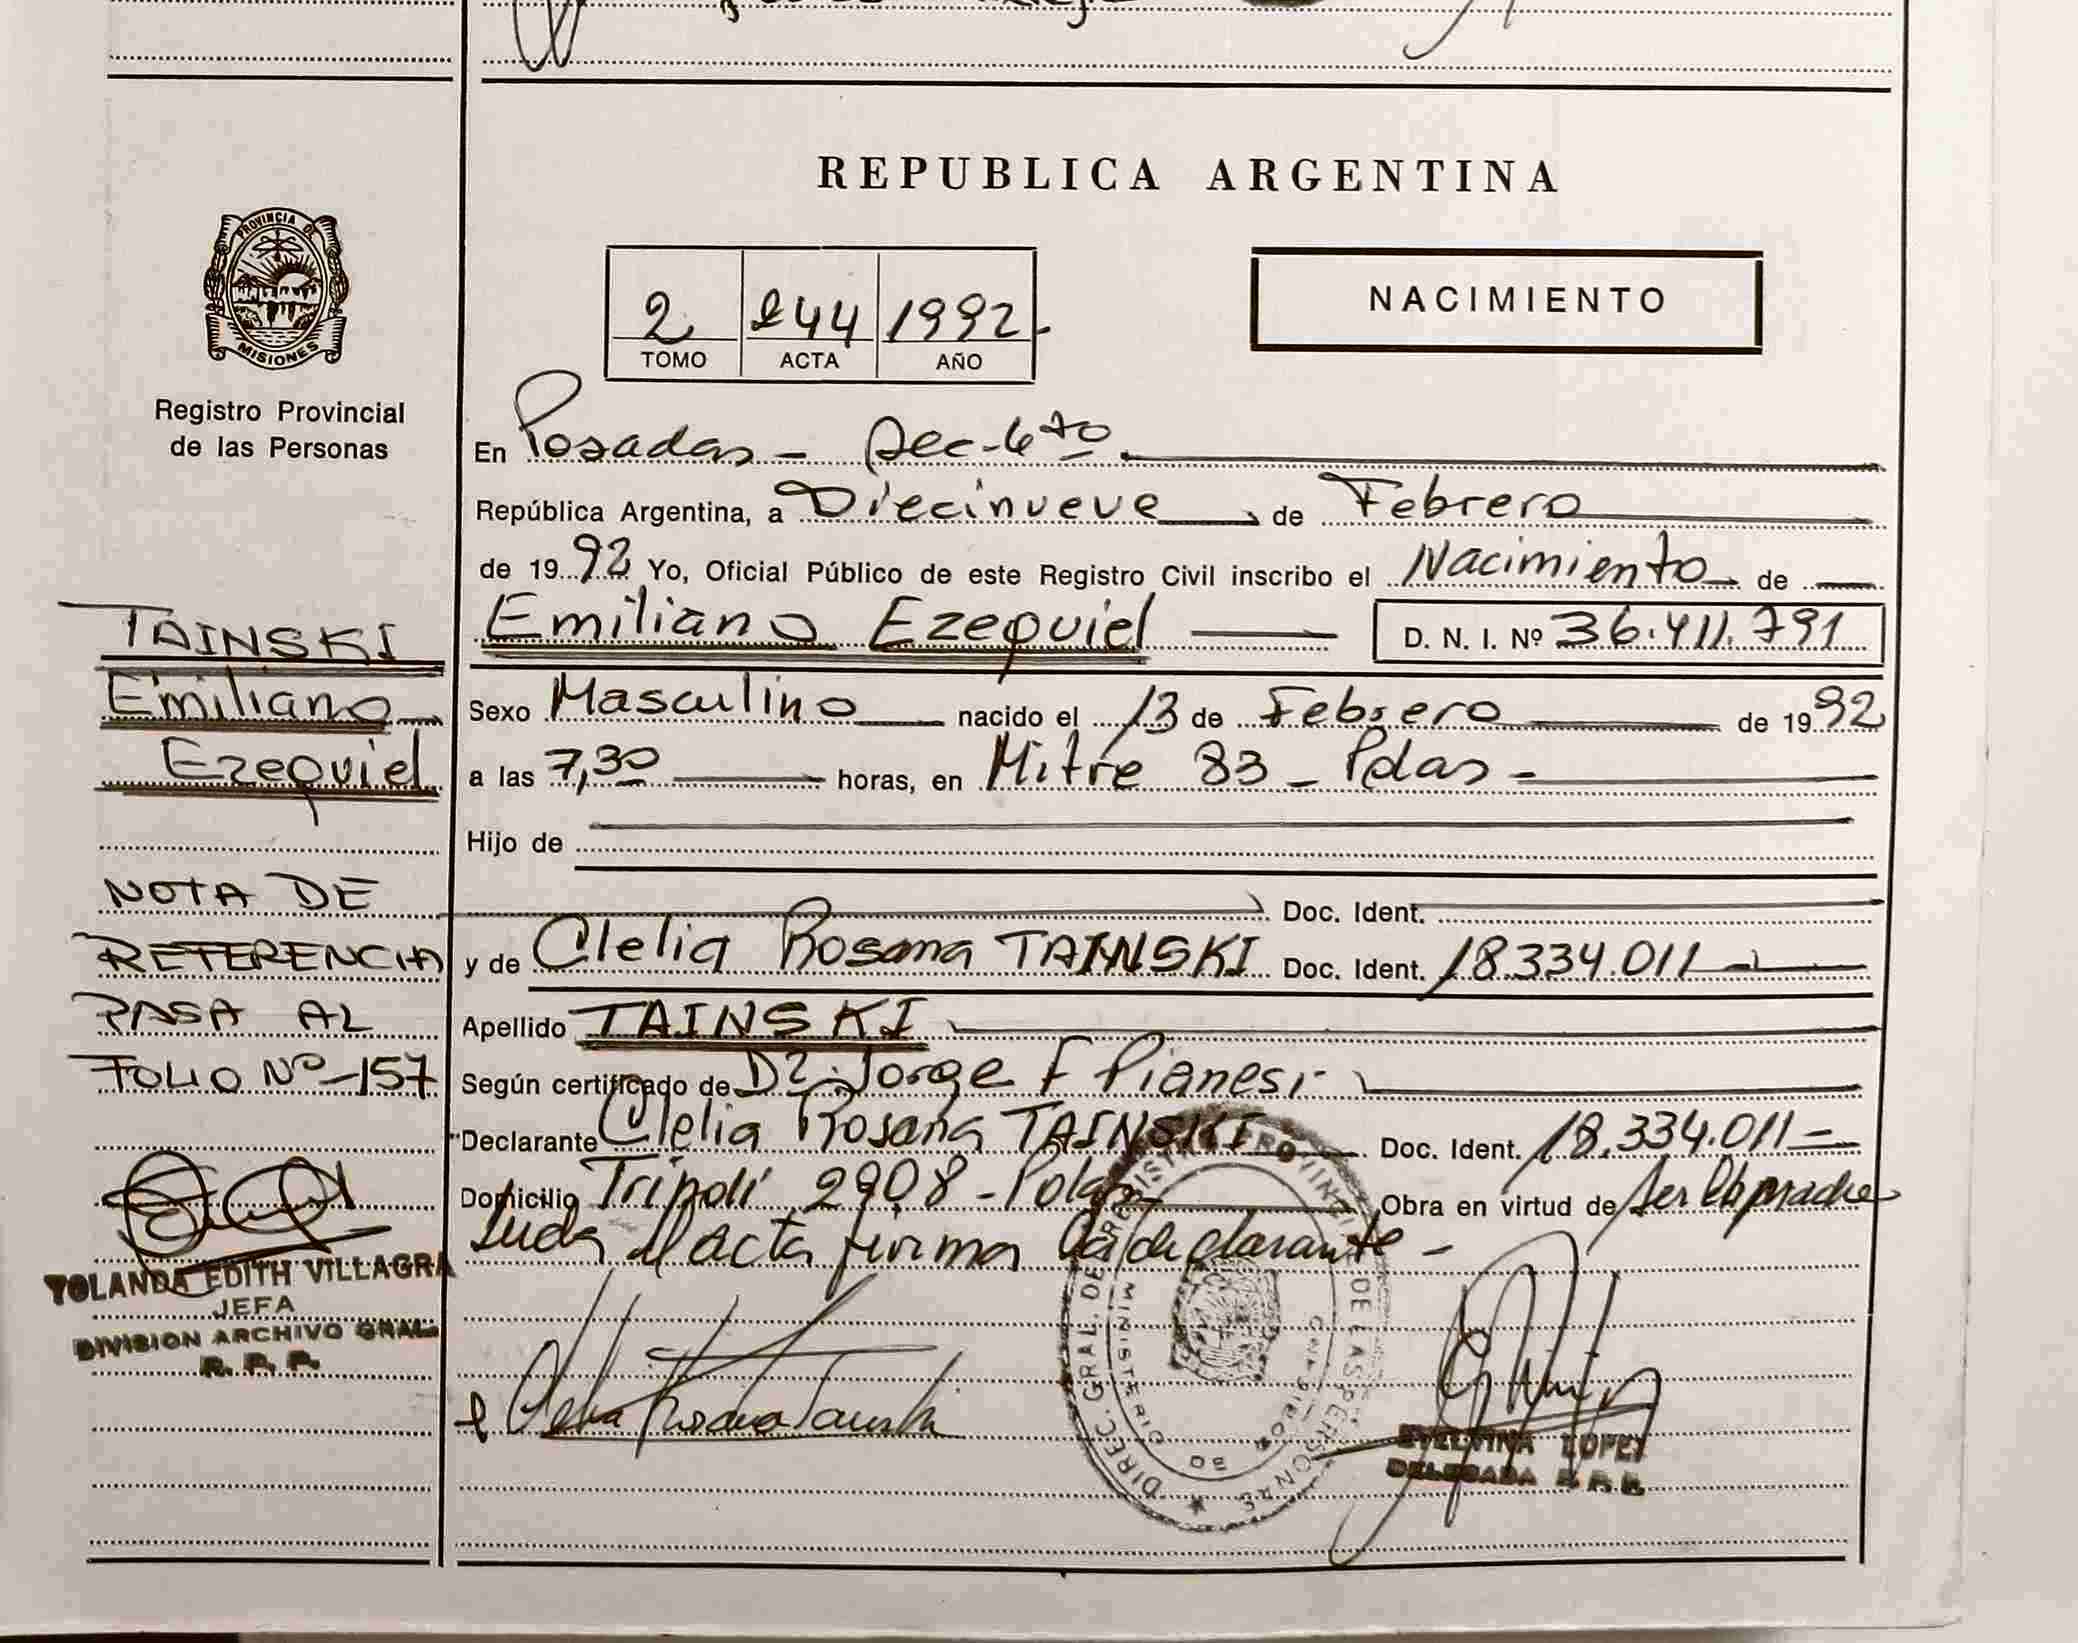 REPUBLICA ARGENTINA
PROVINCIA DE
MISIONES
Registro Provincial
de las Personas
2 244 1992
TOMO ACTA AÑO
NACIMIENTO
En Posadas - Sec. 6to
República Argentina, a Diecinueve de Febrero
de 1992 Yo, Oficial Público de este Registro Civil inscribo el Nacimiento de
Emiliano Ezequiel D. N. I. Nº 36.411.791
Sexo Masculino nacido el 13 de Febrero de 1992
a las 7,30 horas, en Mitre 83 - Pdas -
Hijo de
Doc. Ident.
y de Clelia Rosana TAINSKI Doc. Ident. 18.334.011
Apellido TAINSKI
Según certificado de Dr. Jorge F Pianesi
Declarante Clelia Rosana TAINSKI Doc. Ident. 18.334.011 -
Domicilio Tripoli 2908 - Pdas Obra en virtud de ser la madre
Leida el acta firma la declarante -
TAINSKI
Emiliano
Ezequiel
NOTA DE
REFERENCIA
PASA AL
FOLIO Nº - 157
YOLANDA EDITH VILLAGRA
JEFA
DIVISION ARCHIVO GRAL.
R. P. P.
Clelia Rosana Tainski
DIREC. GRAL. DE REGISTRO PROVINCIAL DE LAS PERSONAS
MINISTERIO DE GOBIERNO
LOPEZ
DELEGADA R. P. P.